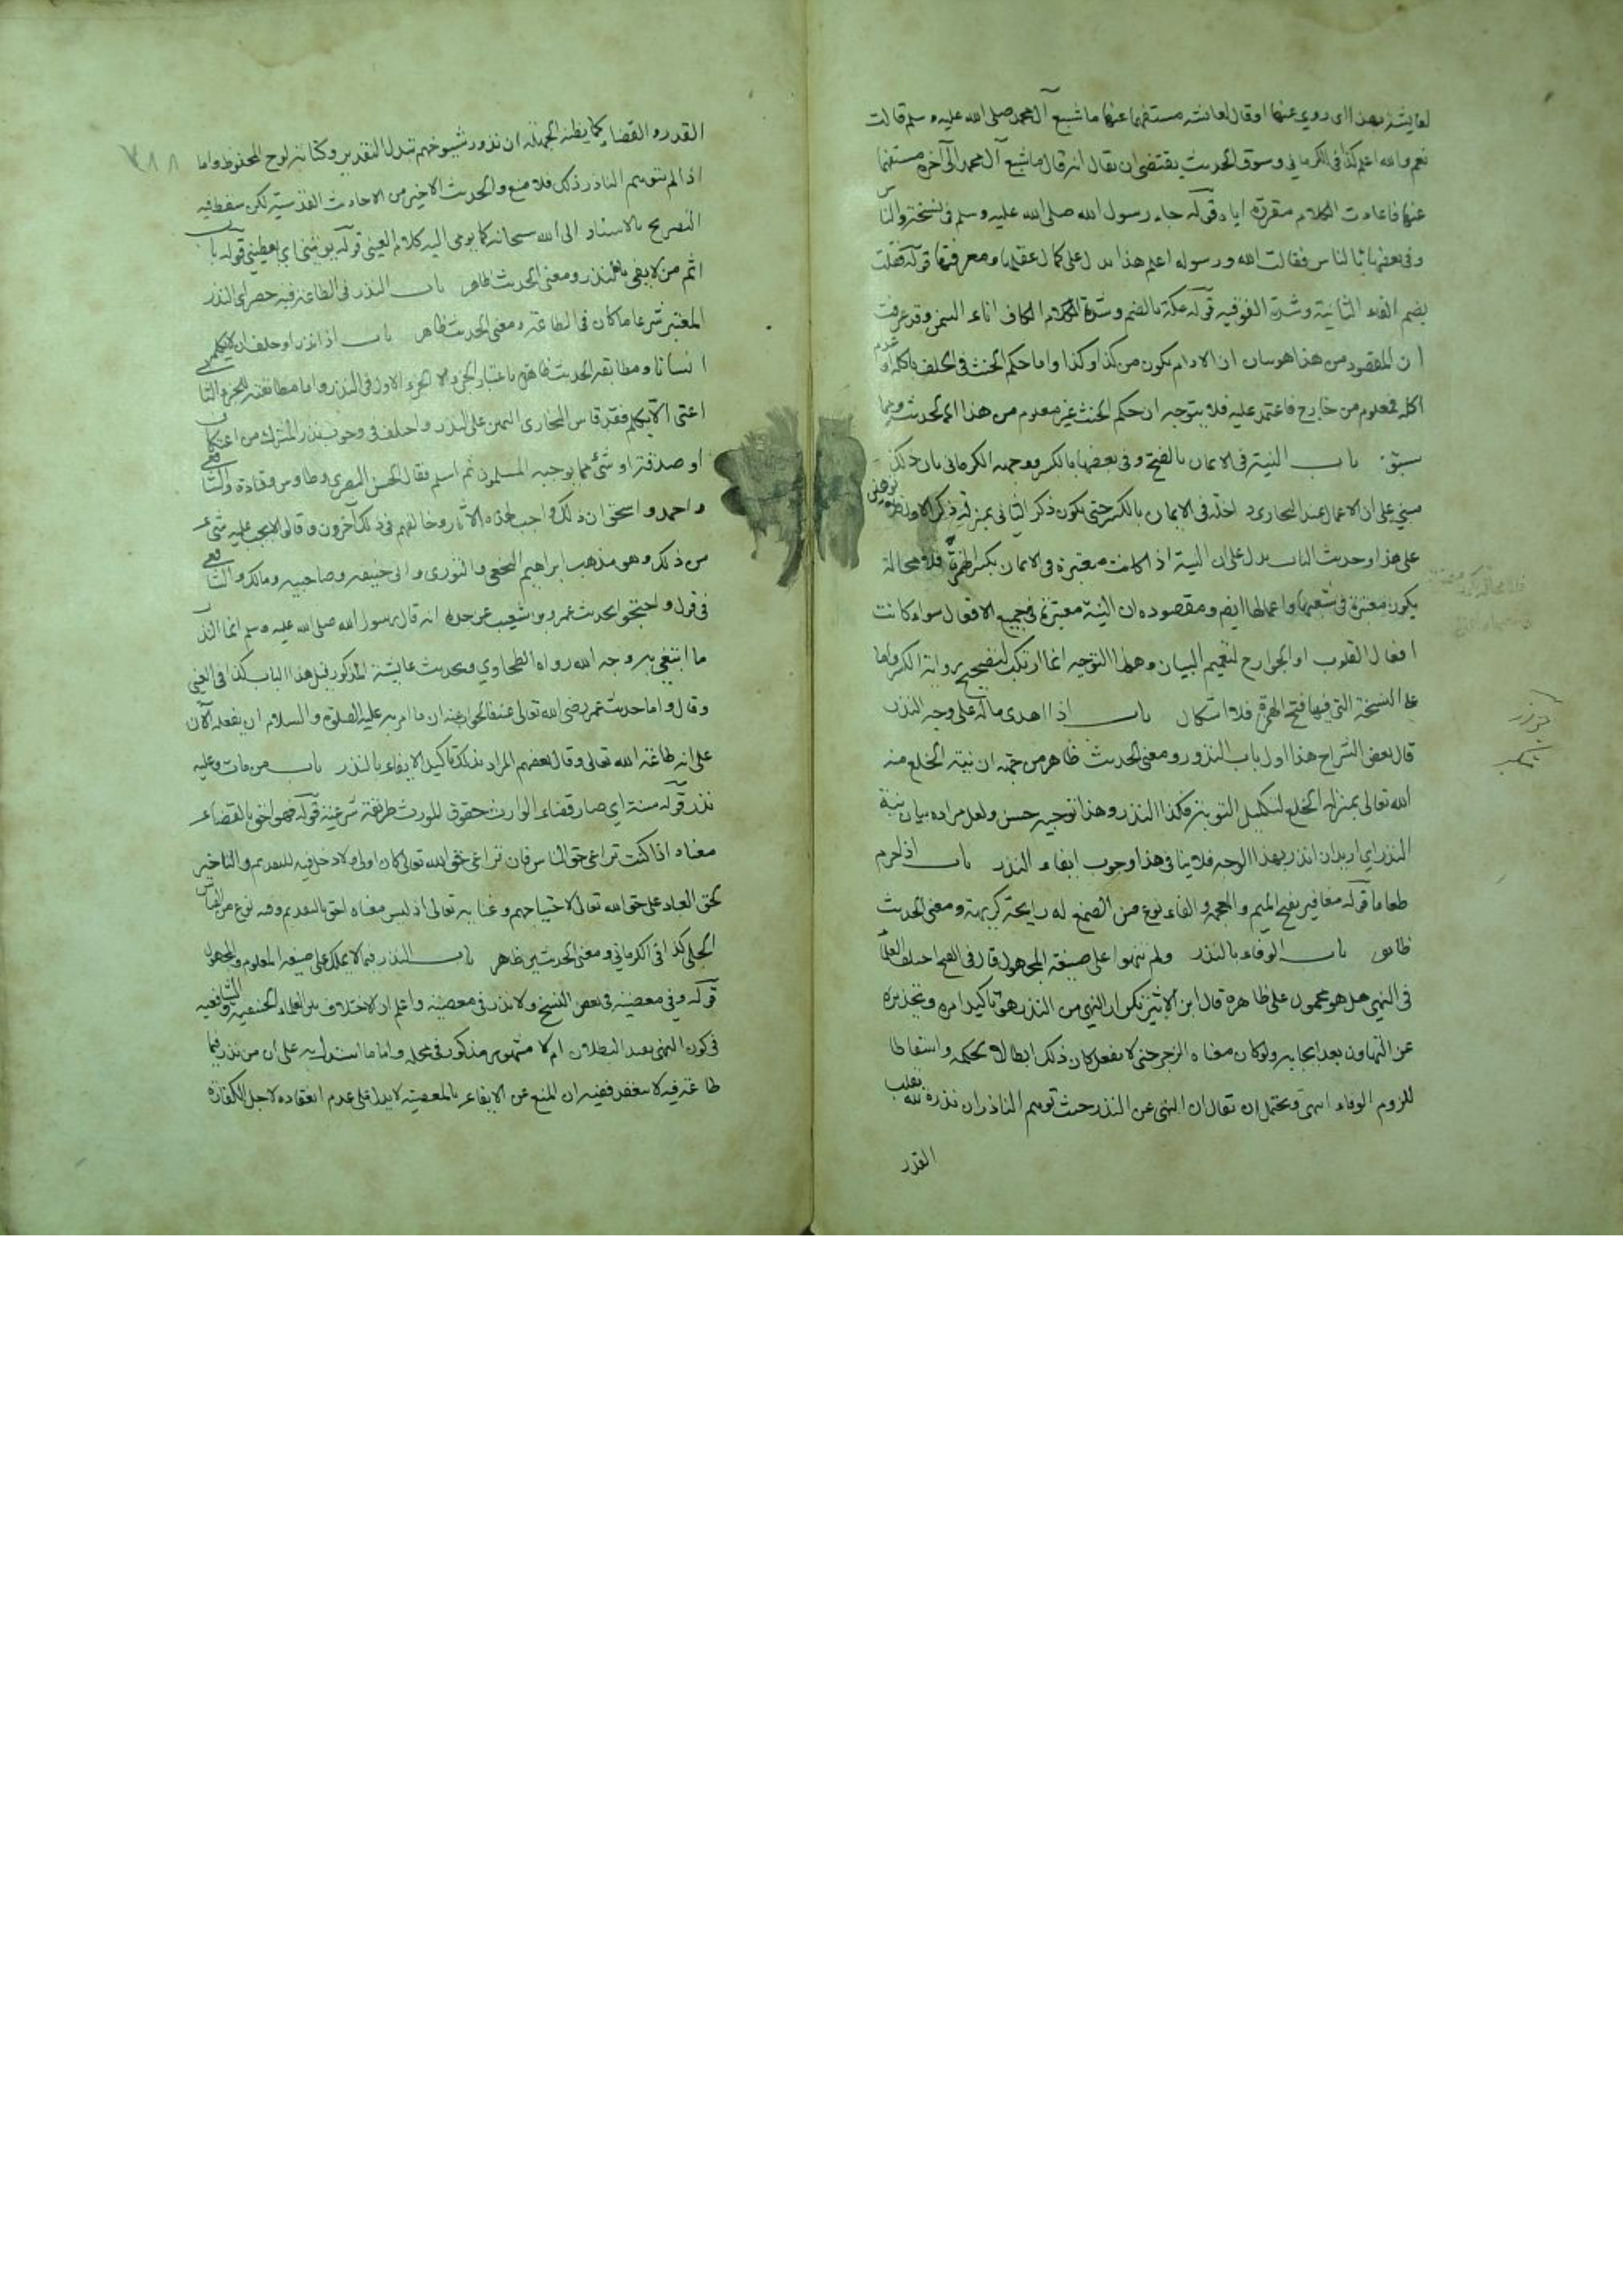 لعايشة بهذا اى روي عنها او قال لعائشة مستفهما عنها ما شبع آل محمد صلى الله عليه وسلم قالت
نعم والله اعلم كذا فى الكرماني وسوق الحديث يقتضى ان يقال انه قال ما شبع آل محمد الى آخره مستفهما
عنها فاعادت الكلام مقررة اياه قوله جاء رسول الله صلى الله عليه وسلم فى نسخة والناس
وفى بعضها بالناس فقالت الله ورسوله اعلم هذا يدل على كمال عقلها ومعرفتها قوله ففتت
بضم الفاء الثانية وشدة الفوقية قوله عكة بالضم وشدة الكاف اناء السمن وقد عرفت
ان المقصود من هذا هو بيان ان الادام يكون من كذا وكذا واما حكم الحنث فى الحلف باكله او عدم
اكله فمعلوم من خارج فاعتمد عليه فلا يتوجه ان حكم الحنث غير معلوم من هذا الحديث وبما
سبق باب النية فى الايمان بالفتح وفى بعضها بالكسر ووجهه الكرمانى بان ذلك
مبني على ان الاعمال عند البخارى داخلة فى الايمان بالكسر حتى يكون ذكر الثانى بمنزلة ذكر الاول
على هذا وحديث الباب يدل على ان النية اذا كانت معتبرة فى الايمان بكسر الهمزة فلا محالة
يكون معتبرة فى شعبها واعمالها ايضا ومقصوده ان النية معتبرة فى جميع الافعال سواء كانت
افعال القلوب او الجوارح لتعميم البيان وهذا التوجيه انما ارتكب لتصحيح رواية الكسر واما
على النسخة التي فيها فتح الهمزة فلا اشكال باب اذا اهدى ماله على وجه النذر
قال بعض الشراح هذا اول باب النذور ومعنى الحديث ظاهر من جهة ان نية الخلع منه
الله تعالى بمنزلة الخلع لتكميل التوبة فكذا النذر وهذا توجيه حسن ولعل مراده بيان نية
النذر اي اريد ان انذر بهذا الوجه فلا ينافى هذا وجوب ايفاء النذر باب اذا حرم
طعاما قوله مغافير بفتح الميم والمعجمة والفاء نوع من الصمغ له رايحة كريهة ومعنى الحديث
ظاهر باب الوفاء بالنذر ولم ينهوا على صيغة المجهول قال فى الفتح اختلف العلماء
فى النهي هل هو محمول على ظاهره قال ابن الاثير تكرار النهي من النذر هو تاكيد امره وتحذيره
عن التهاون بعد ايجابه ولو كان معناه الزجر حتى لا يفعل كان ذلك ابطالا لحكمه واسقاطا
للزوم الوفاء انتهى ويحتمل ان يقال ان النهى عن النذر حيث توهم الناذر ان نذره يقلب
القدر
القدر والقضاء كما يظنه الجهلة ان نذور شيوخهم تبدل التقدير وكتابة لوح المحفوظ واما
اذا لم يتوهم الناذر ذلك فلا منع والحديث الاخير من الاحاديث القدسية لكن سقط فيه
التصريح بالاسناد الى الله سبحانه كما يومى اليه كلام العينى قوله يوتينى اي يعطيني قوله باب
اثم من لا يفى بالنذر ومعنى الحديث ظاهر باب النذر فى الطاعة فيه حصر اى النذر
المعتبر شرعا ما كان فى الطاعة ومعنى الحديث ظاهر باب اذا نذر او حلف ان لا يكلم
انسانا ومطابقة الحديث ظاهر باعتبار الجزء الاول فى النذر واما مطابقته للجزء الثانى
اعنى الا يكلم فقد قاس البخارى اليمين على النذر واختلف فى وجوب نذر المشرك من اعتكاف
او صدقة او شئ مما يوجبه المسلمون ثم اسلم فقال الحسن البصرى وطاوس وقتادة والشافعى
واحمد واسحق ان ذلك واجب لهذه الآثار وخالفهم فى ذلك آخرون وقالوا لا يجب عليه شئ
من ذلك وهو مذهب ابراهيم النخعى والثورى وابى حنيفة وصاحبيه ومالك والشافعى
فى قول واحتجوا بحديث عمرو بن شعيب عن جده انه قال رسول الله صلى الله عليه وسلم انما النذر
ما ابتغى به وجه الله رواه الطحاوي وبحديث عايشة المذكور قبل هذا الباب كذا فى العينى
وقال واما حديث عمر رضى الله تعالى عنه فالجواب عنه ان ما امر به عليه الصلوة والسلام ان يفعله الآن
على انه طاعة الله تعالى وقال بعضهم المراد بذلك تاكيد الايفاء بالنذر باب من مات وعليه
نذر قوله سنة اي صار قضاء الوارث حقوق المورث طريقة شرعية قوله فهو احق بالقضاء
معناه اذا كنت تراعى حق الناس فان تراعى حق الله تعالى كان اولى ولا دخل فيه للتقديم والتاخير
لحق العباد على حق الله تعالى لاحتياجهم وغنايه تعالى اذ ليس معناه احق بالتقديم وفيه نوع من القياس
الجلى كذا فى الكرمانى ومعنى الحديثين ظاهر باب النذر فيما لا يملك على صيغة المعلوم والمجهول
قوله وفى معصية فى بعض النسخ ولا نذر فى معصية واعلم ان الاختلاف بين العلماء الحنفية والشافعية
فى كون النهى يفيد البطلان ام لا مشهور مذكور فى محله واما ما استدل به على ان من نذر فيما
طاعة فيه لا ينعقد ففيه ان المنع عن الايفاء بالمعصية لا يدل على عدم انعقاده لاجل الكفارة